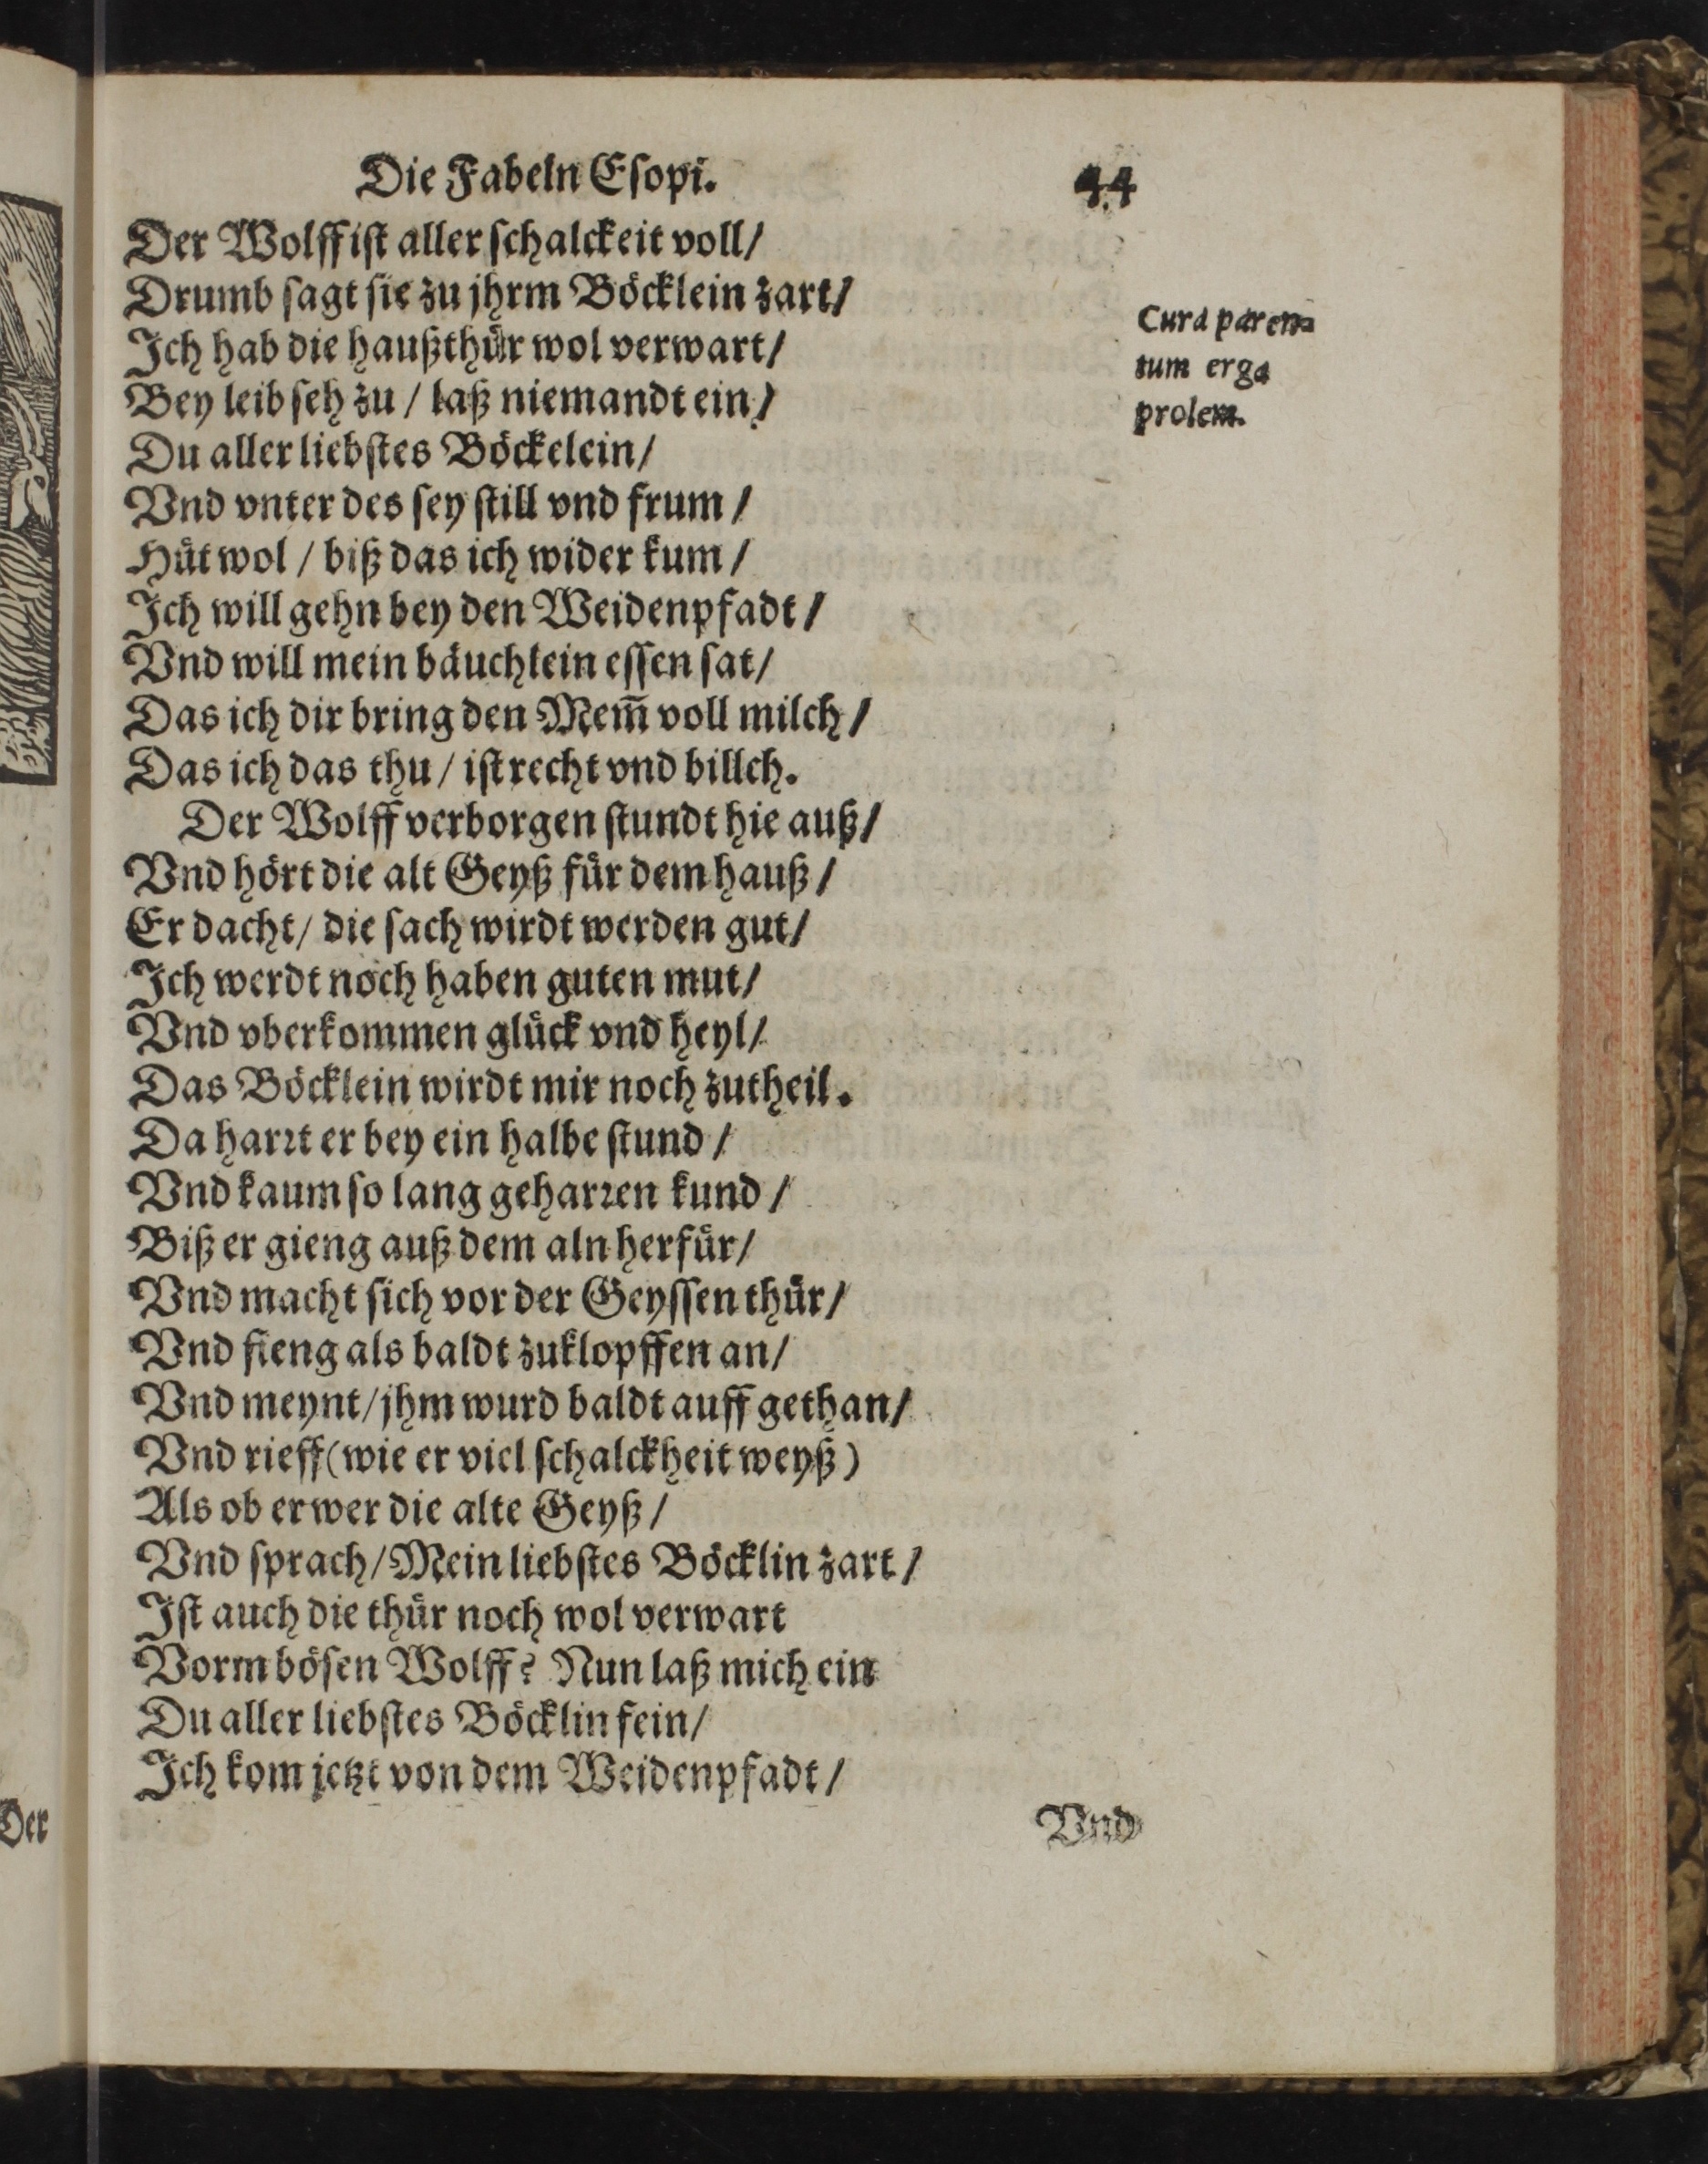 Die Fabeln Eſopi. 44
Der Wolff iſt aller ſchalckeit voll/
Drumb ſagt ſie zu jhrm Böcklein zart/
Ich hab die haußthür wol verwart/
Bey leib ſeh zu / laß niemandt ein /
Du aller liebſtes Böckelein/
Vnd vnter des ſey ſtill vnd frum /
Hüt wol / biß das ich wider kum /
Ich will gehn bey den Weidenpfadt /
Vnd will mein bäuchlein eſſen ſat/
Das ich dir bring den Mem̅ voll milch /
Das ich das thu / iſt recht vnd billch.
Der Wolff verborgen ſtundt hie auß/
Vnd hört die alt Geyß für dem hauß /
Er dacht/ die ſach wirdt werden gut/
Ich werdt noch haben guten mut/
Vnd vberkommen glück vnd heyl/
Das Böcklein wirdt mir noch zutheil.
Da harꝛt er bey ein halbe ſtund /
Vnd kaum ſo lang geharꝛen kund /
Biß er gieng auß dem aln herfür/
Vnd macht ſich vor der Geyſſen thür/
Vnd fieng als baldt zuklopffen an/
Vnd meynt/ jhm wurd baldt auff gethan/
Vnd rieff (wie er viel ſchalckheit weyß)
Als ob er wer die alte Geyß /
Vnd ſprach/ Mein liebſtes Böcklin zart /
Iſt auch die thür noch wol verwart
Vorm böſen Wolff? Nun laß mich ein
Du aller liebſtes Böcklin fein/
Ich kom jetzt von dem Weidenpfadt /
Vnd
Cura paren⸗
tum erga
prolem.
Der